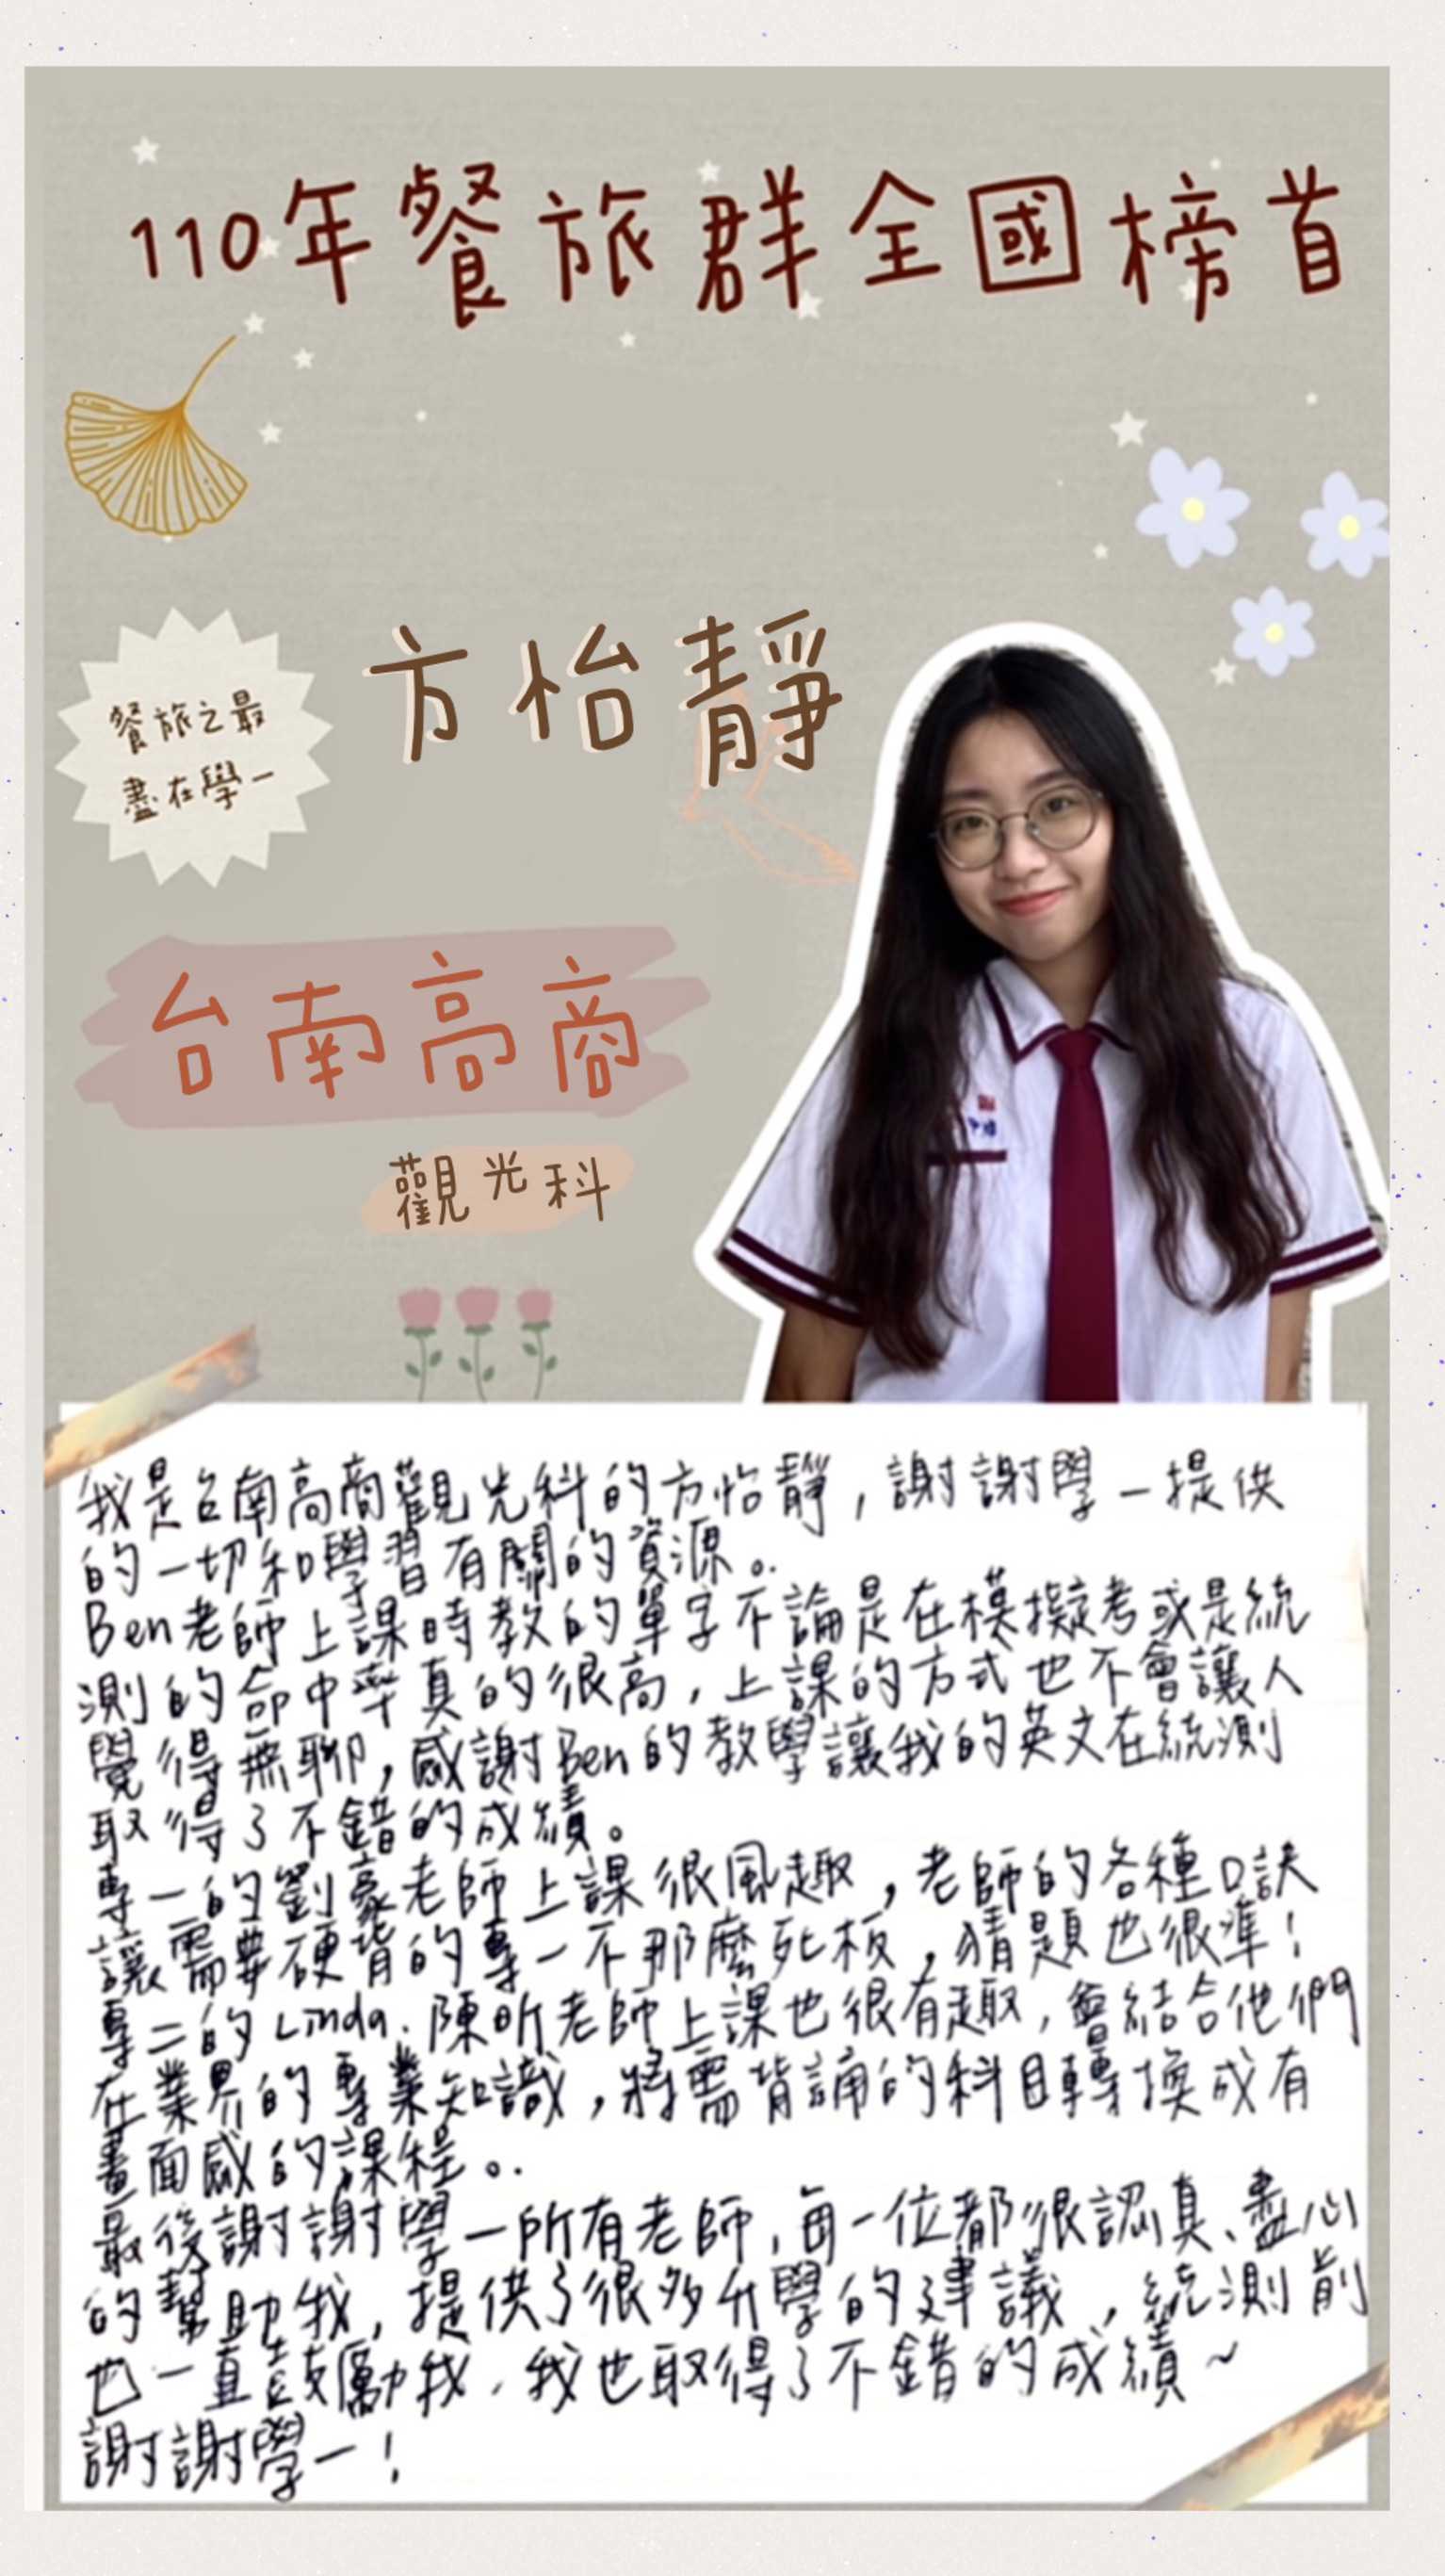 110年餐旅群全國榜首
方怡靜
餐旅之最
盡在學一
台南高商
觀光科
我是台南高商觀光科的方怡靜，謝謝學一提供
的一切和學習有關的資源。
Ben老師上課時教的單字不論是在模擬考或是統
測的命中率真的很高，上課的方式也不會讓人
覺得無聊，感謝Ben的教學讓我的英文在統測
取得了不錯的成績。
專一的劉豪老師上課很風趣，老師的各種口訣
讓需要硬背的專一不那麼死板，猜題也很準！
專二的Linda.陳昕老師上課也很有趣，會結合他們
在業界的專業知識，將需背誦的科目轉換成有
畫面感的課程。
最後謝謝學一所有老師，每一位都很認真、盡心
的幫助我，提供了很多升學的建議，統測前
也一直鼓勵我，我也取得了不錯的成績~
謝謝學一！